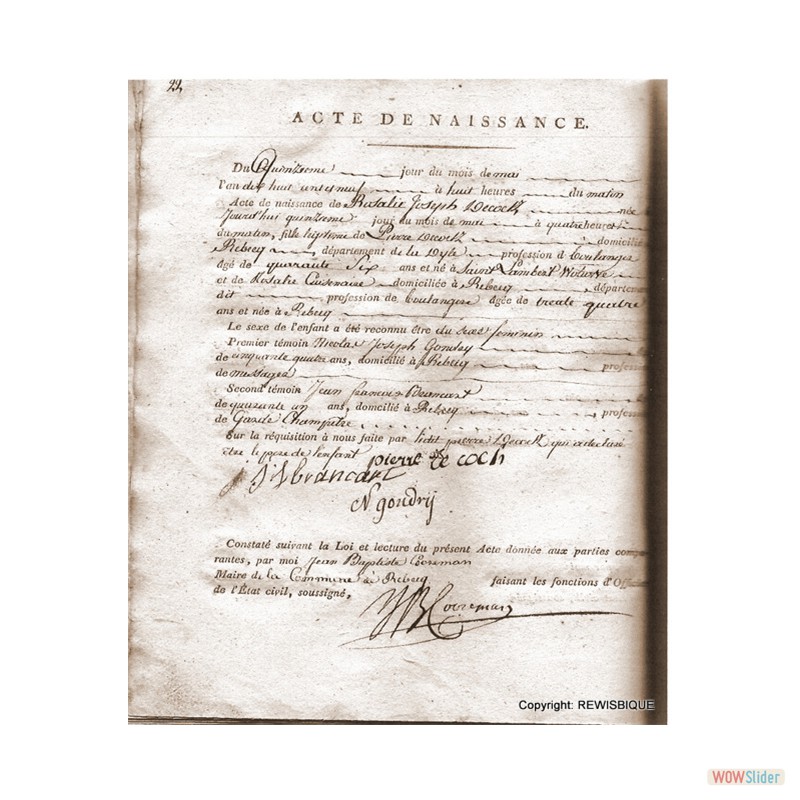 22.
ACTE DE NAISSANCE.
Du Quinzieme jour du mois de mai
l'an dix huit cent neuf à huit heures du matin
Acte de naissance de Rosalie Joseph Decock née
jourd'hui quinzieme jour du mois de mai à quatre heures
du matin, fille légitime de Pierre Decock domicilié
Rebecq département de la Dyle profession d boulanger
âgé de quarante Six ans et né à Saint Lambert
et de Rosalie domiciliée à Rebecq département
dit profession de boulangere âgée de trente quatre
ans et née à Rebecq
Le sexe de l'enfant a été reconnu être du sexe feminin
Premier témoin Nicolas Joseph
de cinquante quatre ans, domicilié à Rebecq profess
de messager
Second témoin Jean francois
de quarante un ans, domicilié à Rebecq , profess
de Garde Champetre
Sur la réquisition à nous faite par ledit pierre Decock qui a declaré
être le pere de l'enfant
pierre de cock
J f brancart
N gondry
Constaté suivant la Loi et lecture du présent Acte donnée aux parties compa
rantes, par moi Jean Baptiste Cooreman
Maire de la Commune de Rebecq faisant les fonctions d'Offici
de l'État civil, soussigné,
JB Cooreman
Copyright: REWISBIQUE
WOWSlider